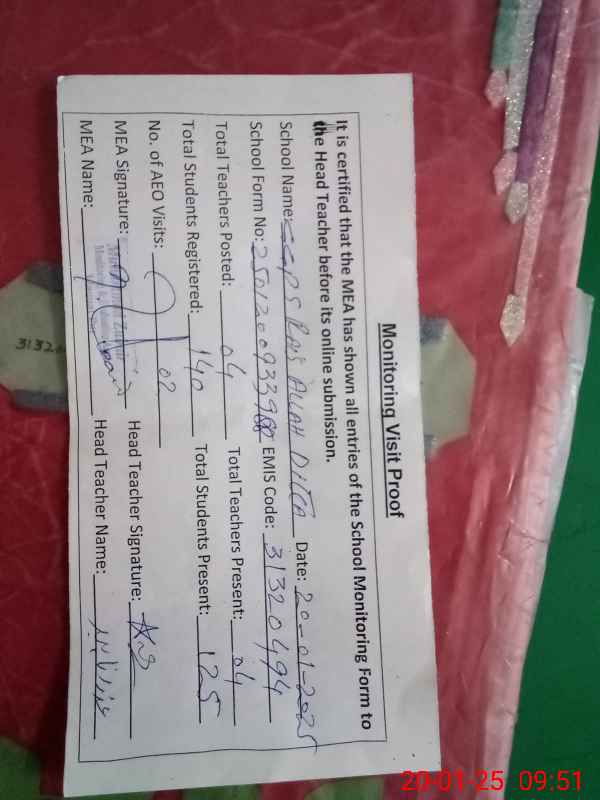 Monitoring Visit Proof
It is certified that the MEA has shown all entries of the School Monitoring Form to
the Head Teacher before its online submission.
School Name: GGPS RAIS ALLAH DITTA Date: 20-01-2025
School Form No: EMIS Code: 31320494
Total Teachers Posted: 04 Total Teachers Present: 04
Total Students Registered: 140 Total Students Present: 125
No. of AEO Visits: 02
MEA Signature: Head Teacher Signature:
MEA Name: Head Teacher Name:
3132
20-01-25 09:51